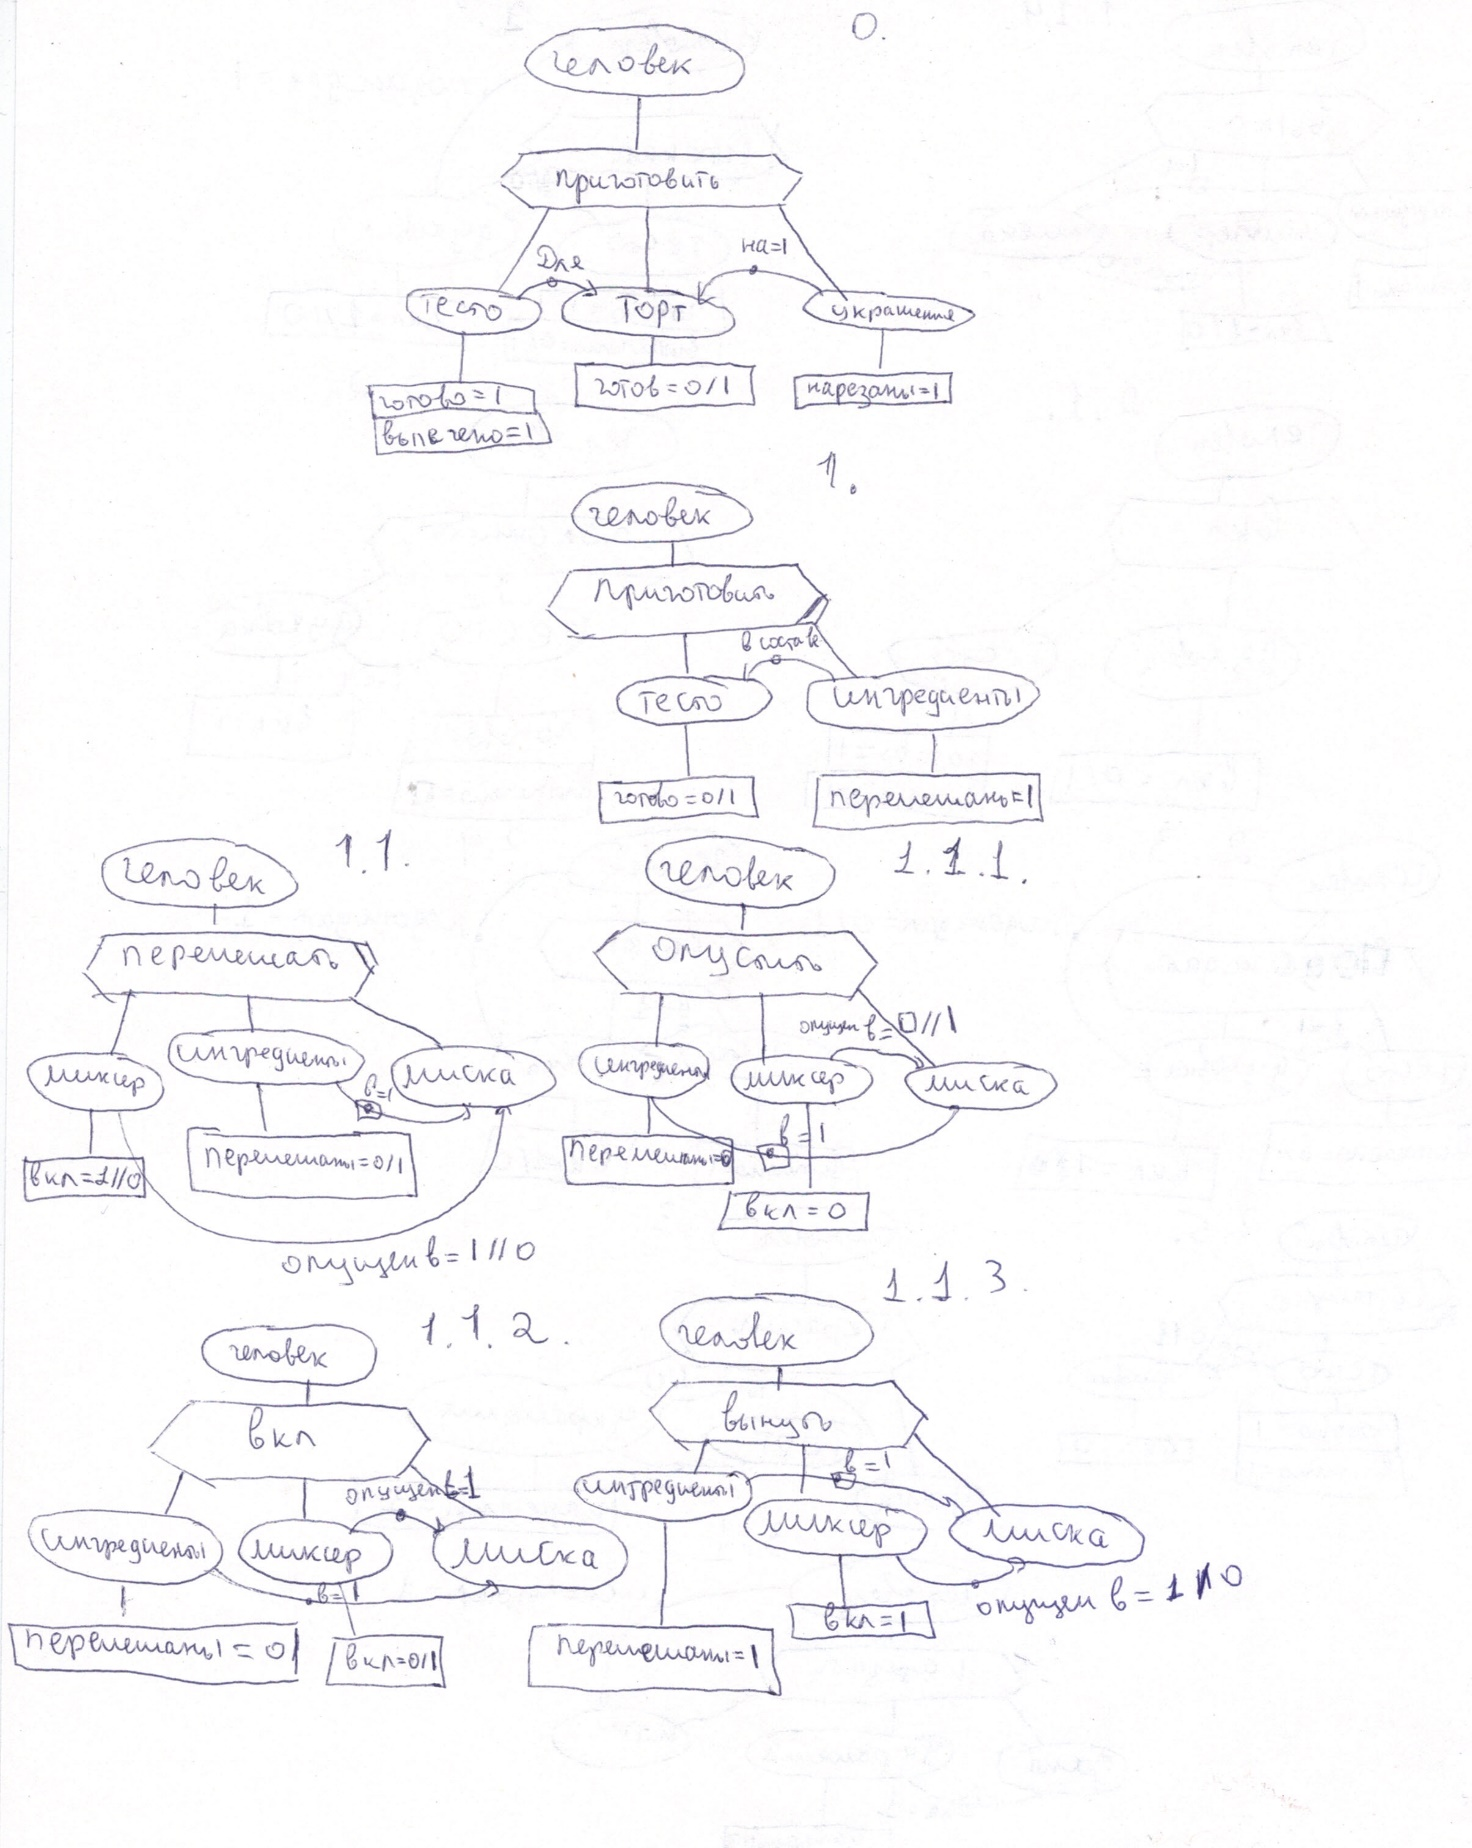 0.
человек
приготовить
Для
на=1
тесто
торт
украшения
готово=1
выпечено=1
готов=0/1
нарезаны=1
1.
человек
приготовить
в составе
тесто
ингредиенты
готово=0/1
перемешаны=1
1.1.
человек
перемешать
миксер
ингредиенты
миска
в=1
вкл=1//0
перемешаны=0/1
опущен в=1//0
1.1.1.
человек
опустить
опущен в=0//1
ингредиенты
миксер
миска
в=1
перемешаны=0
вкл=0
1.1.2.
человек
вкл
опущен в=1
ингредиенты
миксер
миска
в=1
перемешаны=0/
вкл=0/1
1.1.3.
человек
вынуть
в=1
ингредиенты
миксер
миска
опущен в=1//0
вкл=1
перемешаны=1